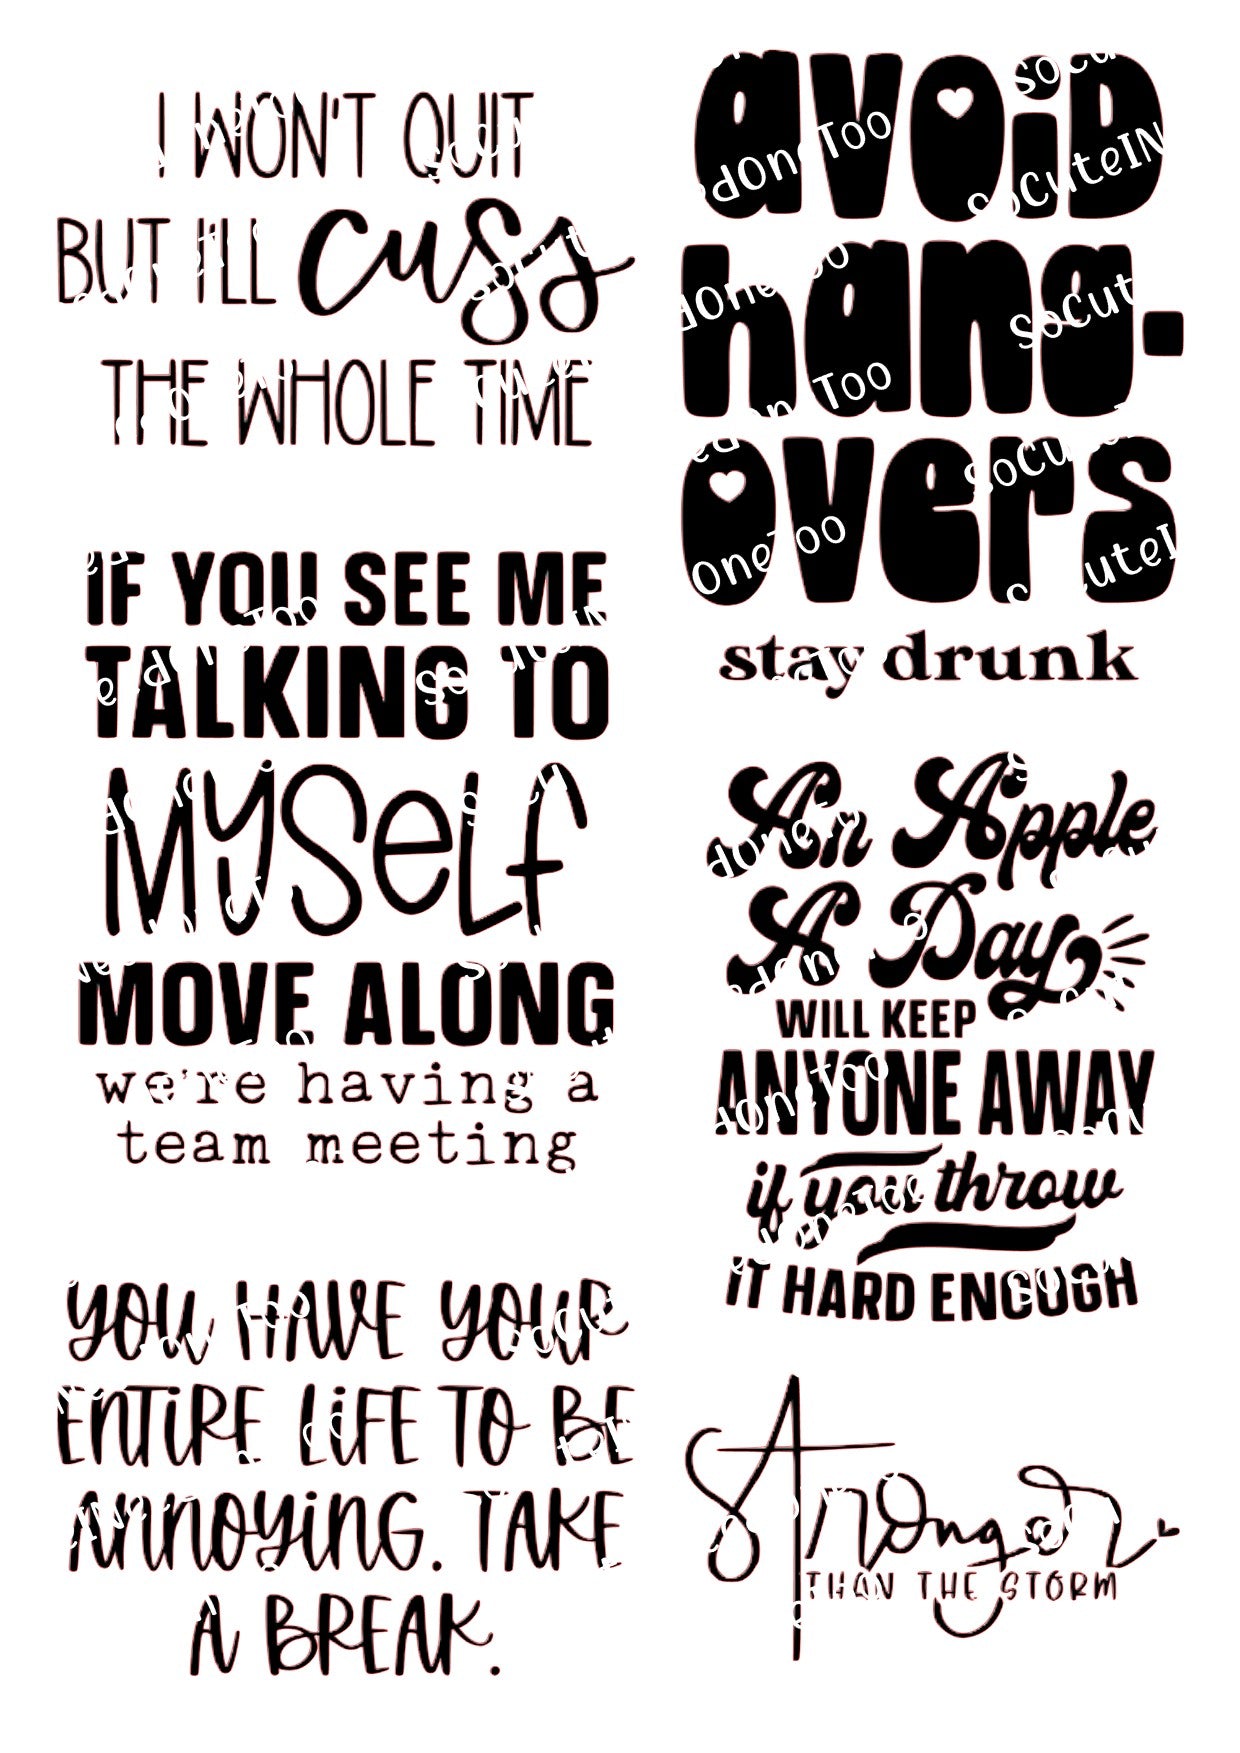 I WON'T QUIT
BUT I'LL cuss
THE WHOLE TIME
IF YOU SEE ME
TALKING TO
MYSELF
MOVE ALONG
we're having a
team meeting
YOU HAVE YOUR
ENTIRE LIFE TO BE
ANNOYING. TAKE
A BREAK.
avoid
hang-
overs
stay drunk
An Apple
A Day
WILL KEEP
ANYONE AWAY
if you throw
IT HARD ENOUGH
Stronger
THAN THE STORM